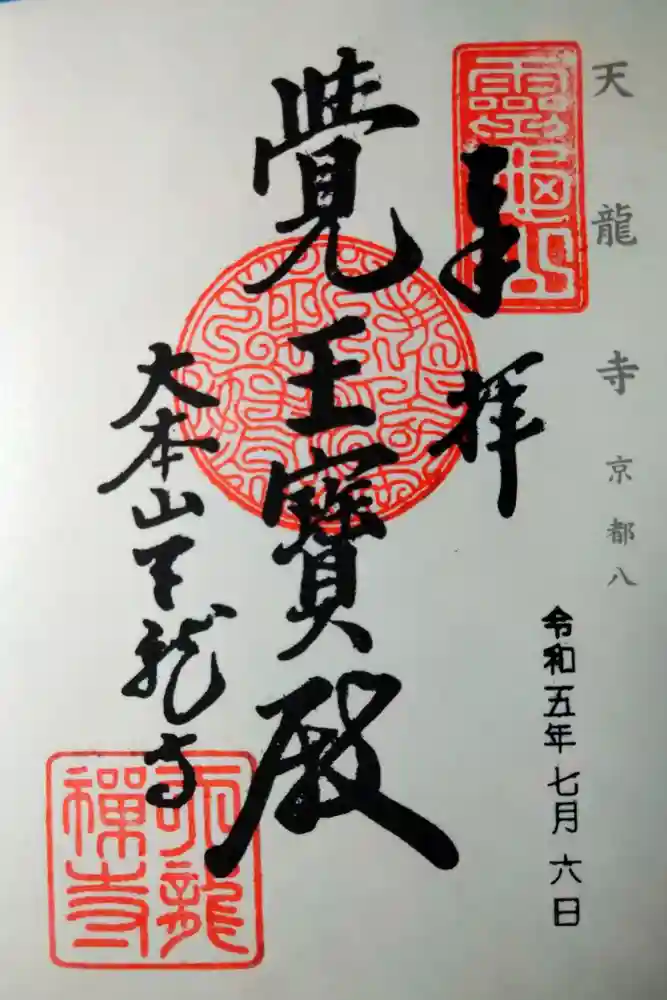 天龍寺 京都八
令和五年七月六日
奉拝
靈龜山
覺王寶殿
大本山天龍寺
天龍禪寺